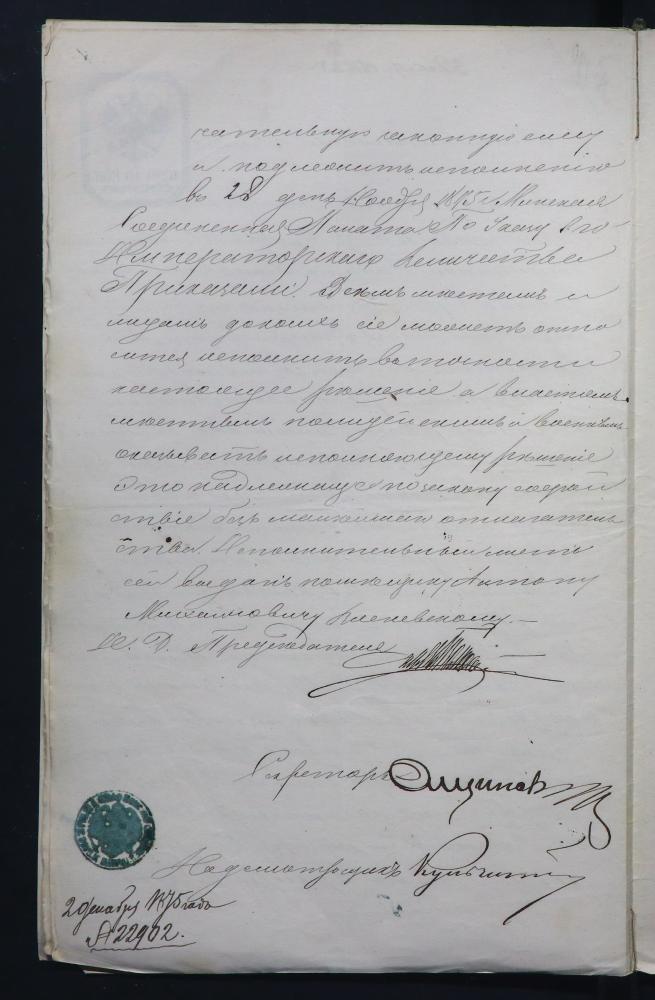 кательную законную силу
и подлежитъ исполненію
въ 28 день Ноября 1875 г. Минская
Соединенная Палата По Указу Его
Императорскаго Величества
Приказали. Всемъ местамъ и
лицамъ до коихъ сіе можетъ отно
ситься исполнить въ точности
настоящее решеніе а властямъ
местнымъ полицейскимъ и военнымъ
оказывать исполняющему решеніе
это надлежащее по закону содей
ствіе безъ малейшаго отлагатель
ства. Исполнительный листъ
сей выданъ помещику Антону
Михайловичу
И. Д. Председателя
Секретарь
Надсмотрщикъ
2 декабря 1875 года
№ 22902.